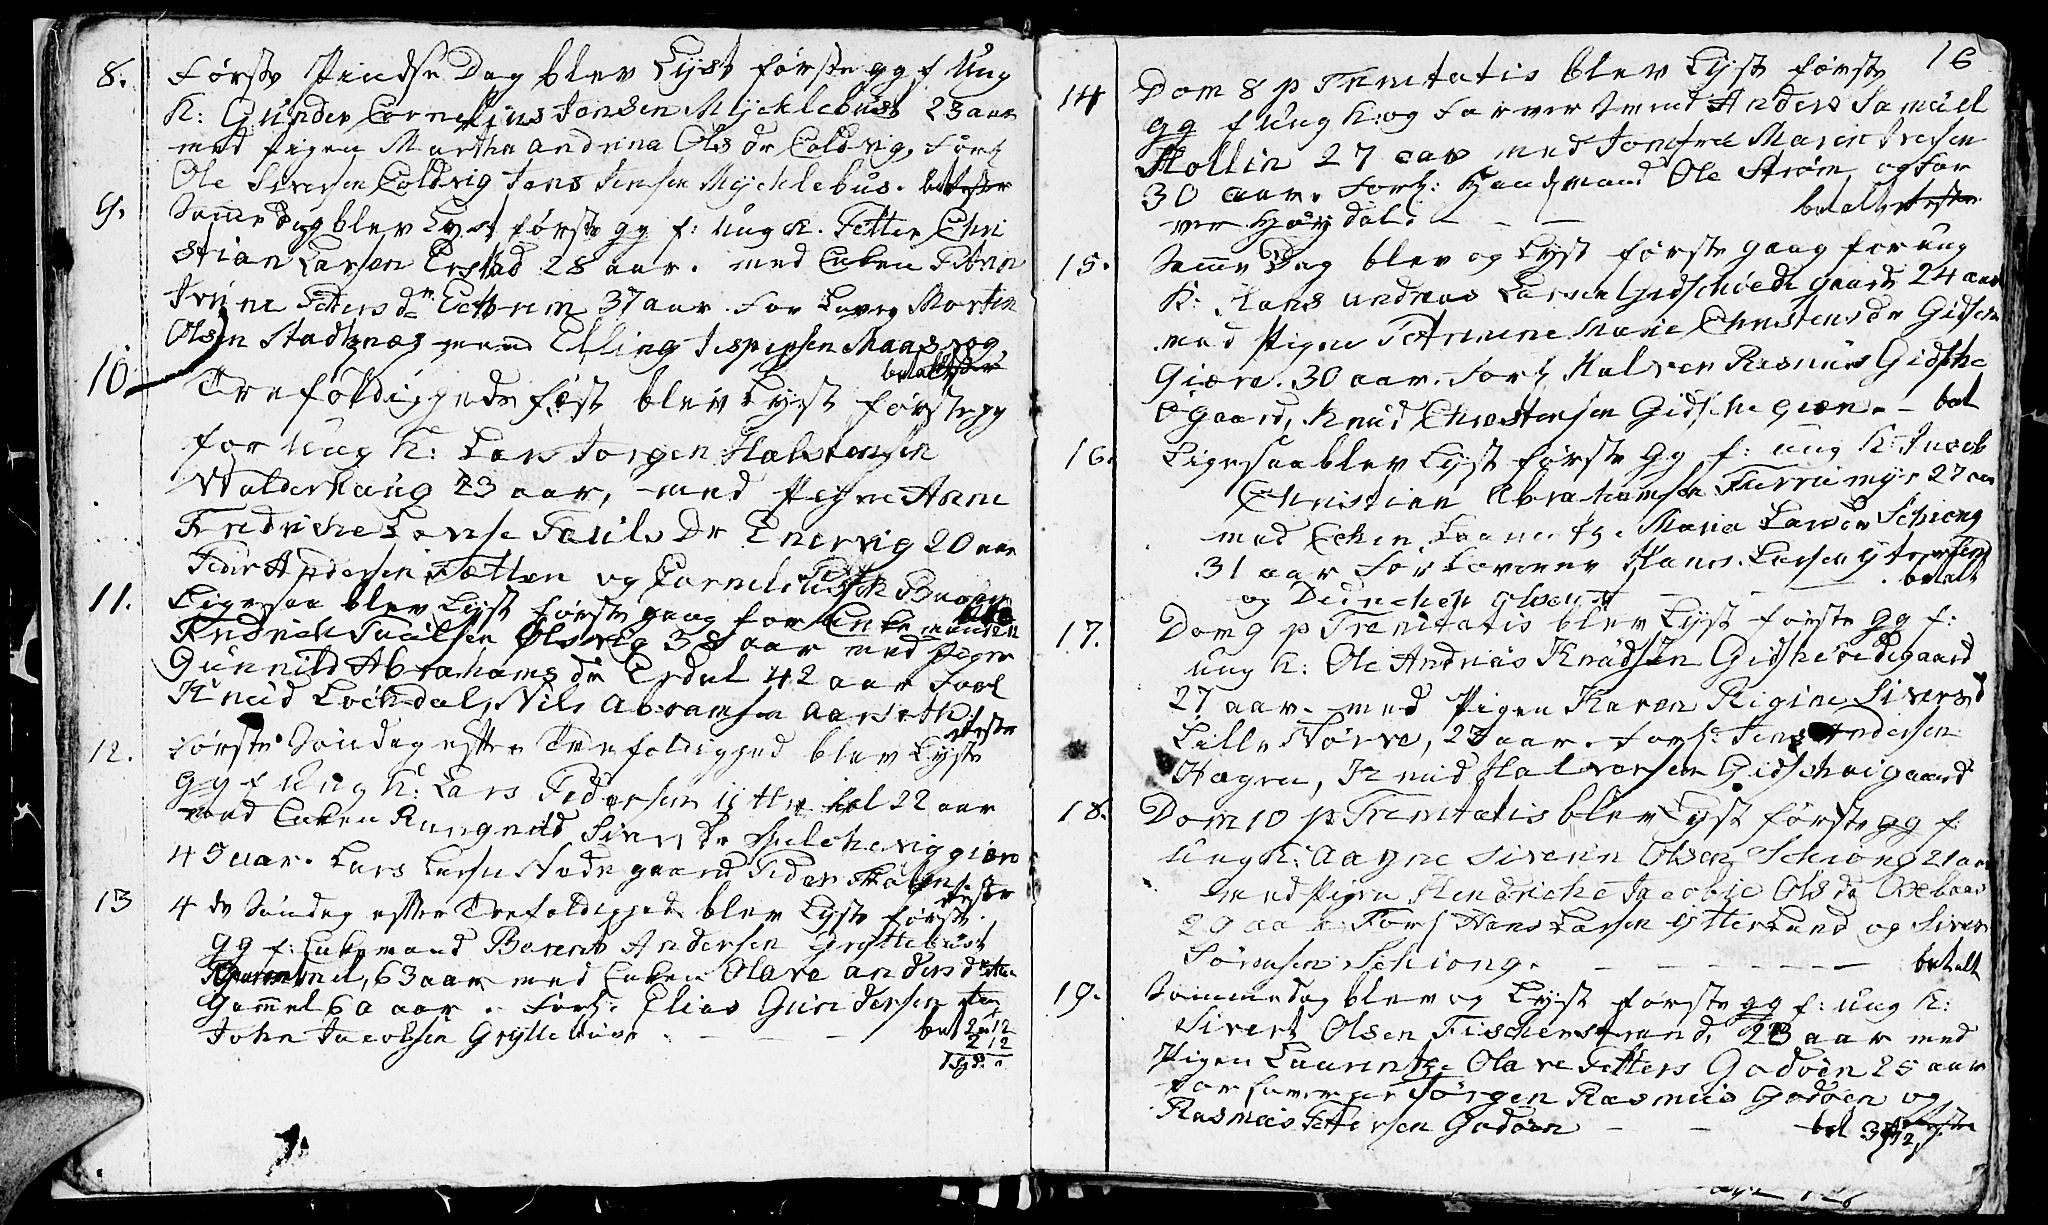 8. Første Pindse Dag blev Lyst første gg f Ung
K: Gunder Cornelius Jonsen Mycklebust 23 aar
med Pigen Marthe andrina Ols dr Coldvig, Forl
Ole Siversen Coldvig Jens Jensen Mycklebus.
9. Samme dag blev Lyst første gg f: ung K. Petter Chri
stian Larsen Erstad 28 aar. med Enken
Petters dr 37 aar. For Laavere Morten
Olsen Stadtznæs Elling Jespersen Maas
10 Trefoldigheds fest blev Lyst første gg
for ung K: Lars Jorgen Halstensen
Walderhaug 23 aar, med Pigen Anne
Fredriche Lovise Pauls Dr Enervig 20 aar
Peder Andersen og Cornelius
11. Ligesaa blev Lyst første gaag for Enkemanden
Fredrich Paulsen Olsvig 38 aar med Pigen
Gunnild Abrahams dr Erdal 42 aar Forl
Knud Lochdal, Nils Abramsen Aarseth
12. Første Søndag efter Trefoldighed blev Lyst
gg f Ung K: Lars Pedersen 22 aar
med Enken Rungnild Sivers dr
45 aar. Lars Larsen Nedregaard Peder
13 4 de Søndag efter Trefoldighed blev Lyst første
gg f: Enkemand Barent Andersen Gryttebust
Gammel, 63 aar med Enken Olave anders dr
Gammel 60 aar. Forl: Elias Gundersen
John Jacobsen Gryttebust - - - bet 2 12
2 12
16
14 Dom 8 p Trinitatis blev Lyst første
gg f ung K: og Farver Svend Anders Samuel
Hollin 27 aar med Jomfru Maren Iversen
30 aar. Forl: Handzmand Ole Strøm, og Far
ver Hjordal. - - -
15. Samme Dag blev og Lyst første gaag for ung
K: Hans andreas Larsen Gidschoedegaard 24 aar
med Pigen Petrine Marie Christens dr Gidsche
Giære. 30 aar. Forl Halver Rasmus Gidsche
øgaard, Knud Christensen Gidsche giær. - bet
16. Ligesaa blev Lyst første gg f: ung K: Jacob
Christian Abrahamsen Furrumyr 27 aar
med Enken Maria Larsdr Schiong
31 aar Forlovere Hans Larsen
og olsen betalt
17. Dom 9 p Trinitatis blev Lyst første gg f:
ung K: Ole Andreas Knudsen Gidskeødegaard
27 aar. med Pigen Karen Rigine Sivers d
Lille Nørve, 23 aar. Forl: Jens Andersen
Hagen, Knud Halvorsen Gidschøigaard
18. Dom 10 p Trinitatis blev Lyst første gg f:
ung K: Aagne Siverin Olsen Schiong 21 aar
med Pigen Hendriche Jacobie Ols dr
29 aar Forl Hans Larsen Ytterland og Siver
Sørensen Schiong. - - - - - betalt
19. Samme dag blev og Lyst første gg f: ung K:
Sivert Olsen Fischerstrand, 23 aar med
Pigen Laurentze Olave Petters Godøen 25 aar
Forlovere Jørgen Rasmus Godøen og
Rasmus Pettersen Godøen - - bet